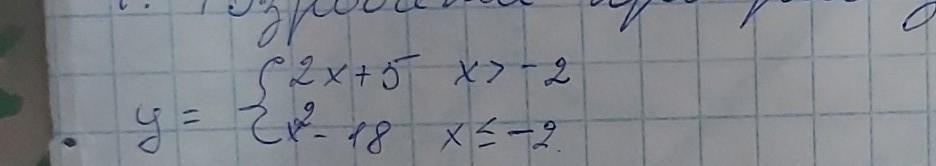 y = { 2x+5 x > -2
x² - 18 x ≤ -2.